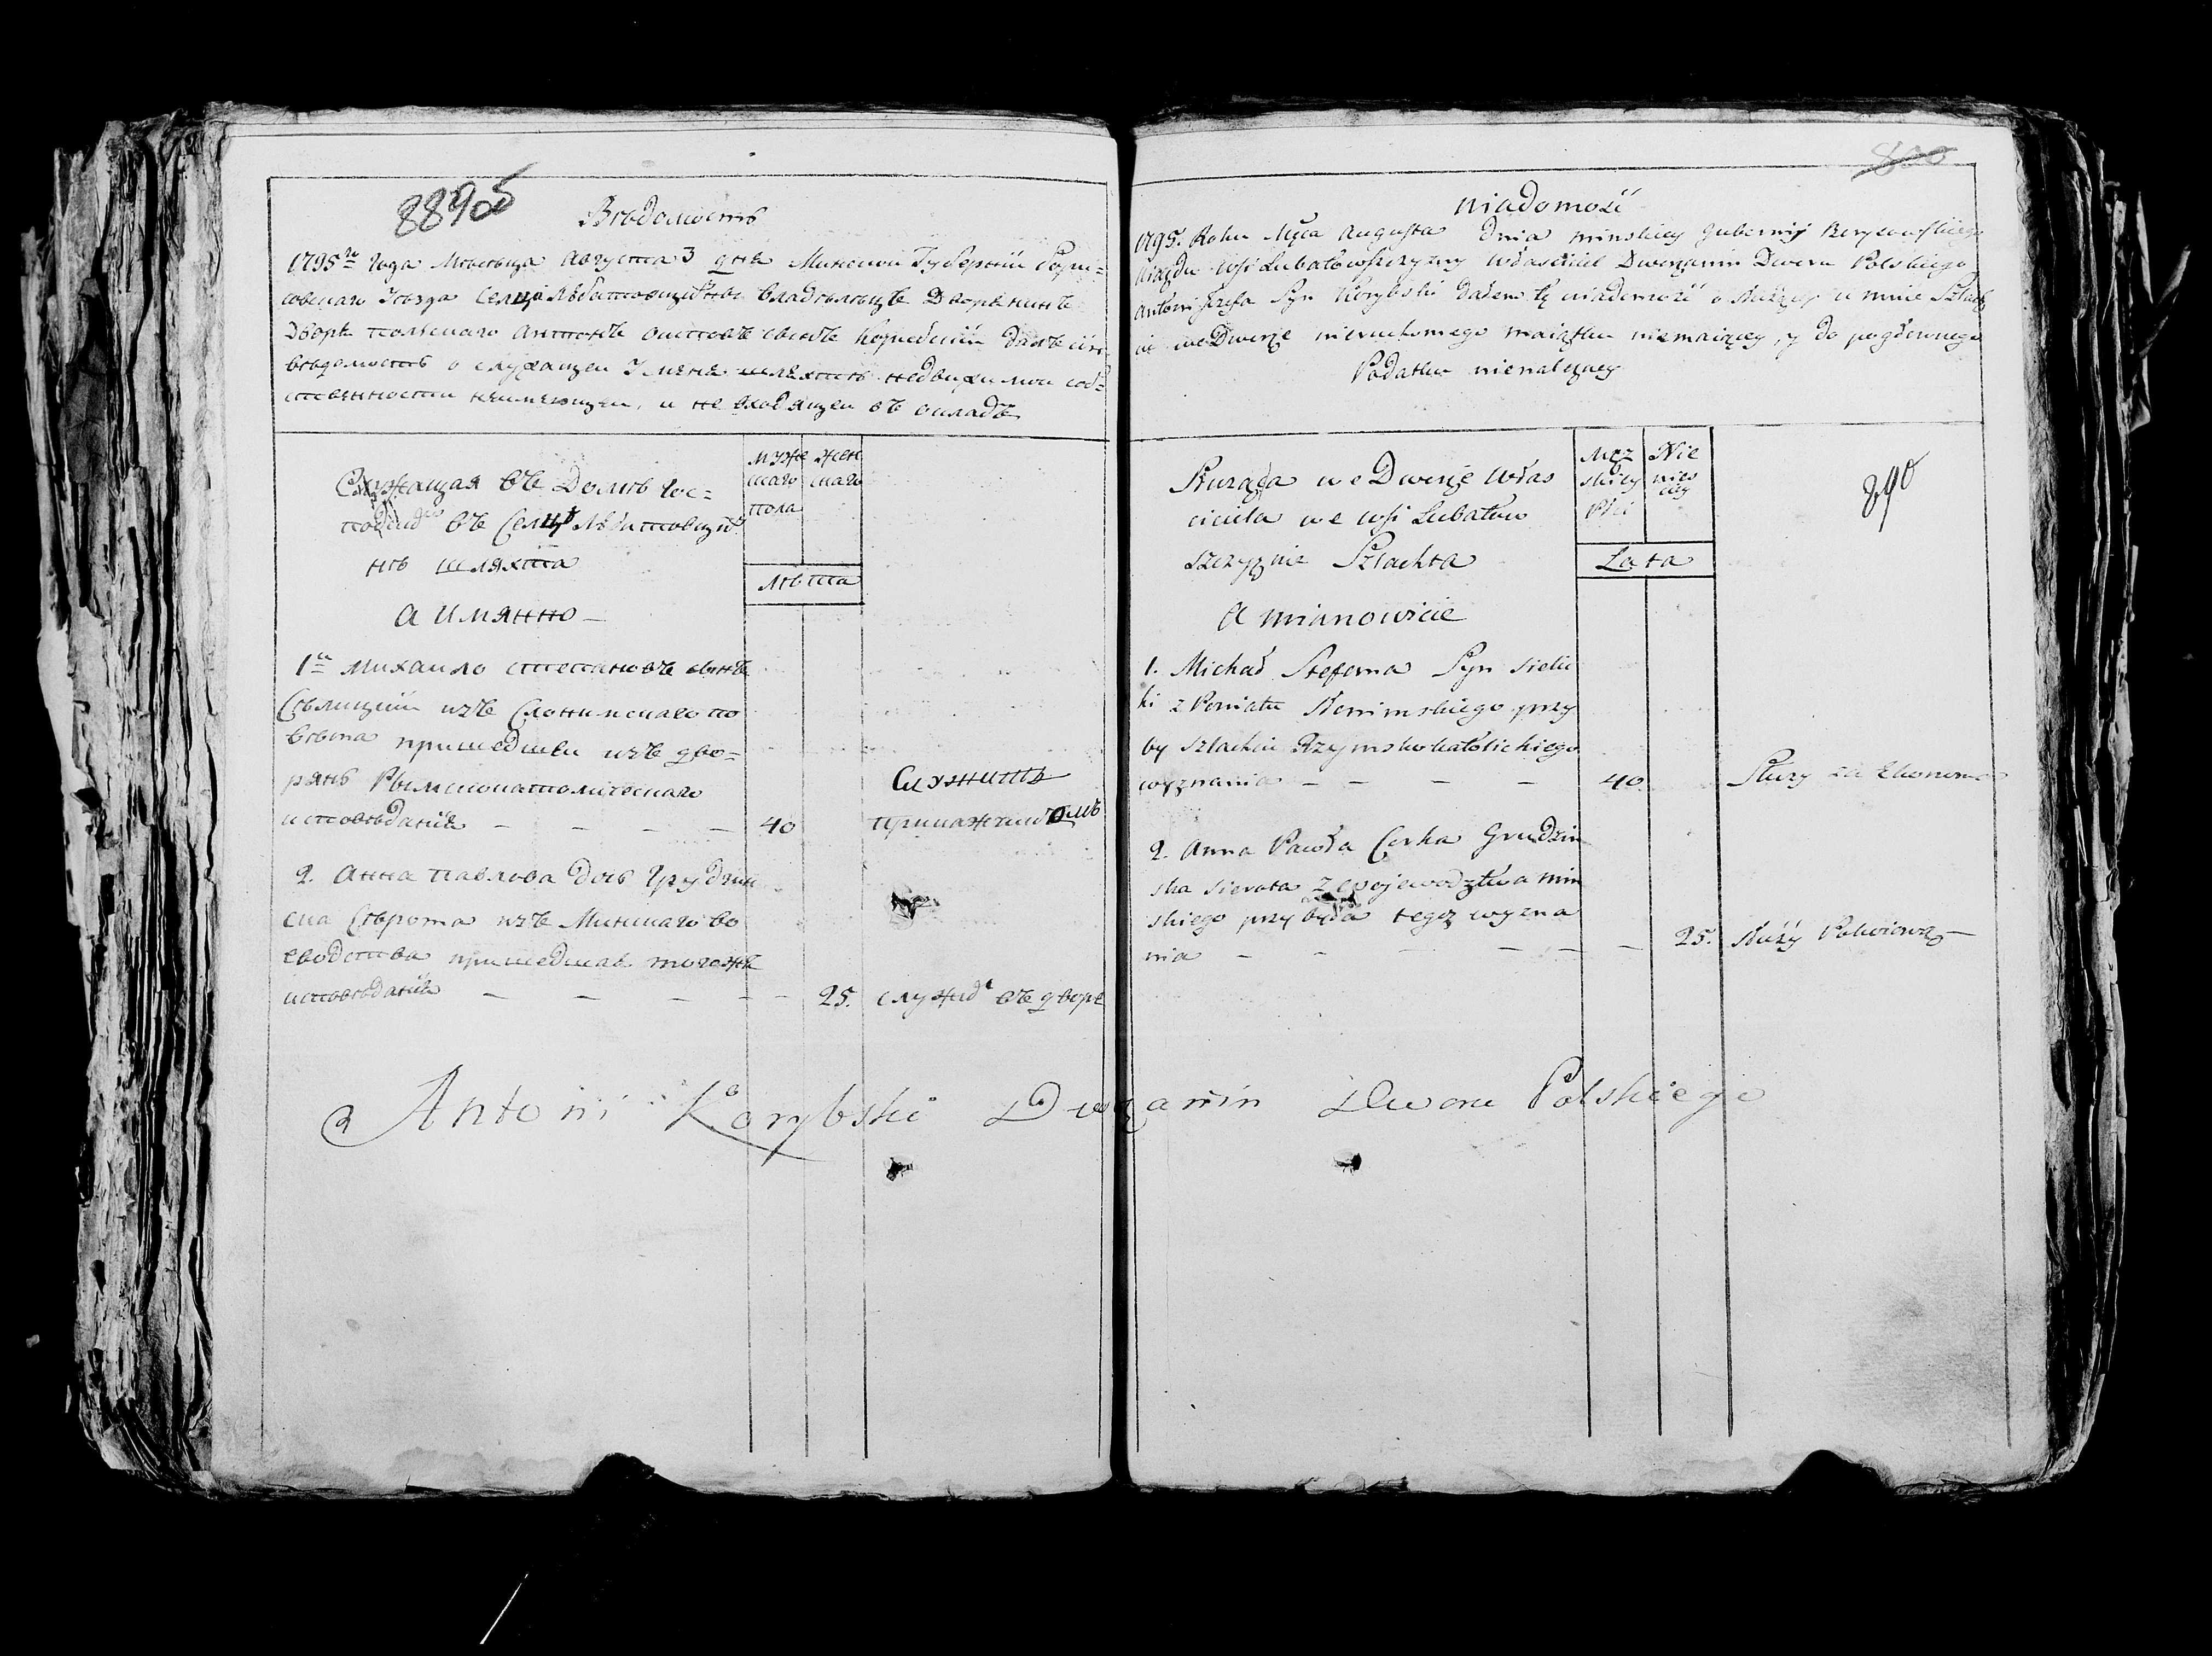 889об
Вѣдомость
1795го Года Мѣсяца Августа 3 дня Минской Губерніи Бори=
совскаго Уезда Селца Любатовщизны владѣлецъ Дворянинъ
Двора полскаго Антонъ Осиповъ сынъ Корибскій далъ сію
вѣдомость о служащеи У меня шляхтѣ недвижимои соб=
ственности неимеющеи, и не входящеи въ окладъ
Служащая въ Домѣ гос=
въ Селцѣ Любатовщиз
нѣ шляхта
а имянно
муже
скаго
пола
жен
скаго
лѣта
1й Михаило Степановъ сынъ
Сѣлицкій изъ Слонимскаго по
вѣта пришедшеи изъ дво=
рянъ Рымскокатолическаго
исповѣданія — — — — 40
Служитъ
2. Анна павлова дочь Грудзин
ска Сѣрота изъ Минскаго во
еводства пришедшая тогожъ
исповѣданія — — — — — 25. служитъ въ дворе
Antoni Korybski Dworzanin Dworu Polskiego
800
Wiadomość
1795. Roku Mca Augusta Dnia Minskiey Gubernij Boryzowskiego
Uiazdu Wsi Lubatowszczyzny Właściciel Dworzanin Dworu Polskiego
Antoni Jozefa Syn Korybski dałem tę wiadomość o służącey u mnie Szlach
cie we Dworze nieruchomego maiątku niemaiącey, y do pogłownego
Podatku nienależney
890
Służąca we Dworze Włas
ciciela we Wsi Lubatow
szczyznie Szlachta
a mianowicie
Męz
skiey
Płci
Nie
wies
ciey
Lata
1. Michał Stefana Syn Sielic
ki z Powiatu Słonimskiego przy
by Szlachcic Rzymsko katolickiego
wyznania — — — — 40. Służy za Ekonoma
2. Anna Pawła Corka Grudzin
ska sierota z Wojewodztwa Min
skiego przybyła tegoż wyzna
nia — — — — — 25. Służy Pokoiową —